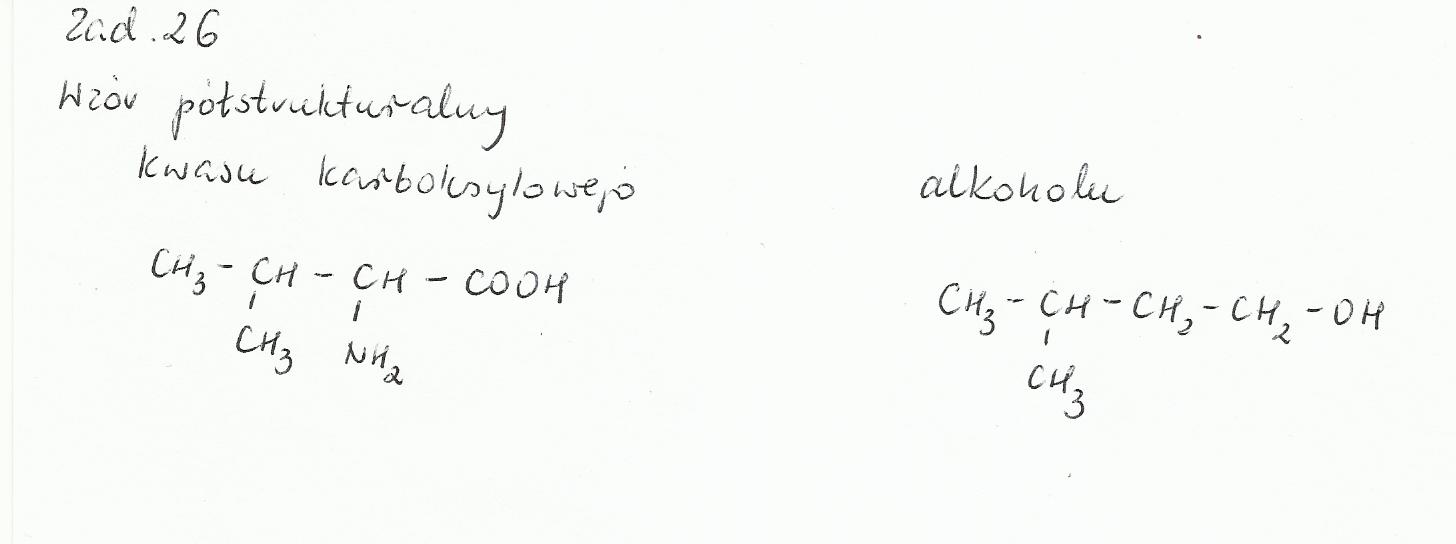 Zad. 26
Wzór półstrukturalny
kwasu karboksylowego alkoholu
CH₃ - CH - CH - COOH
CH₃ NH₂
CH₃ - CH - CH₂ - CH₂ - OH
CH₃